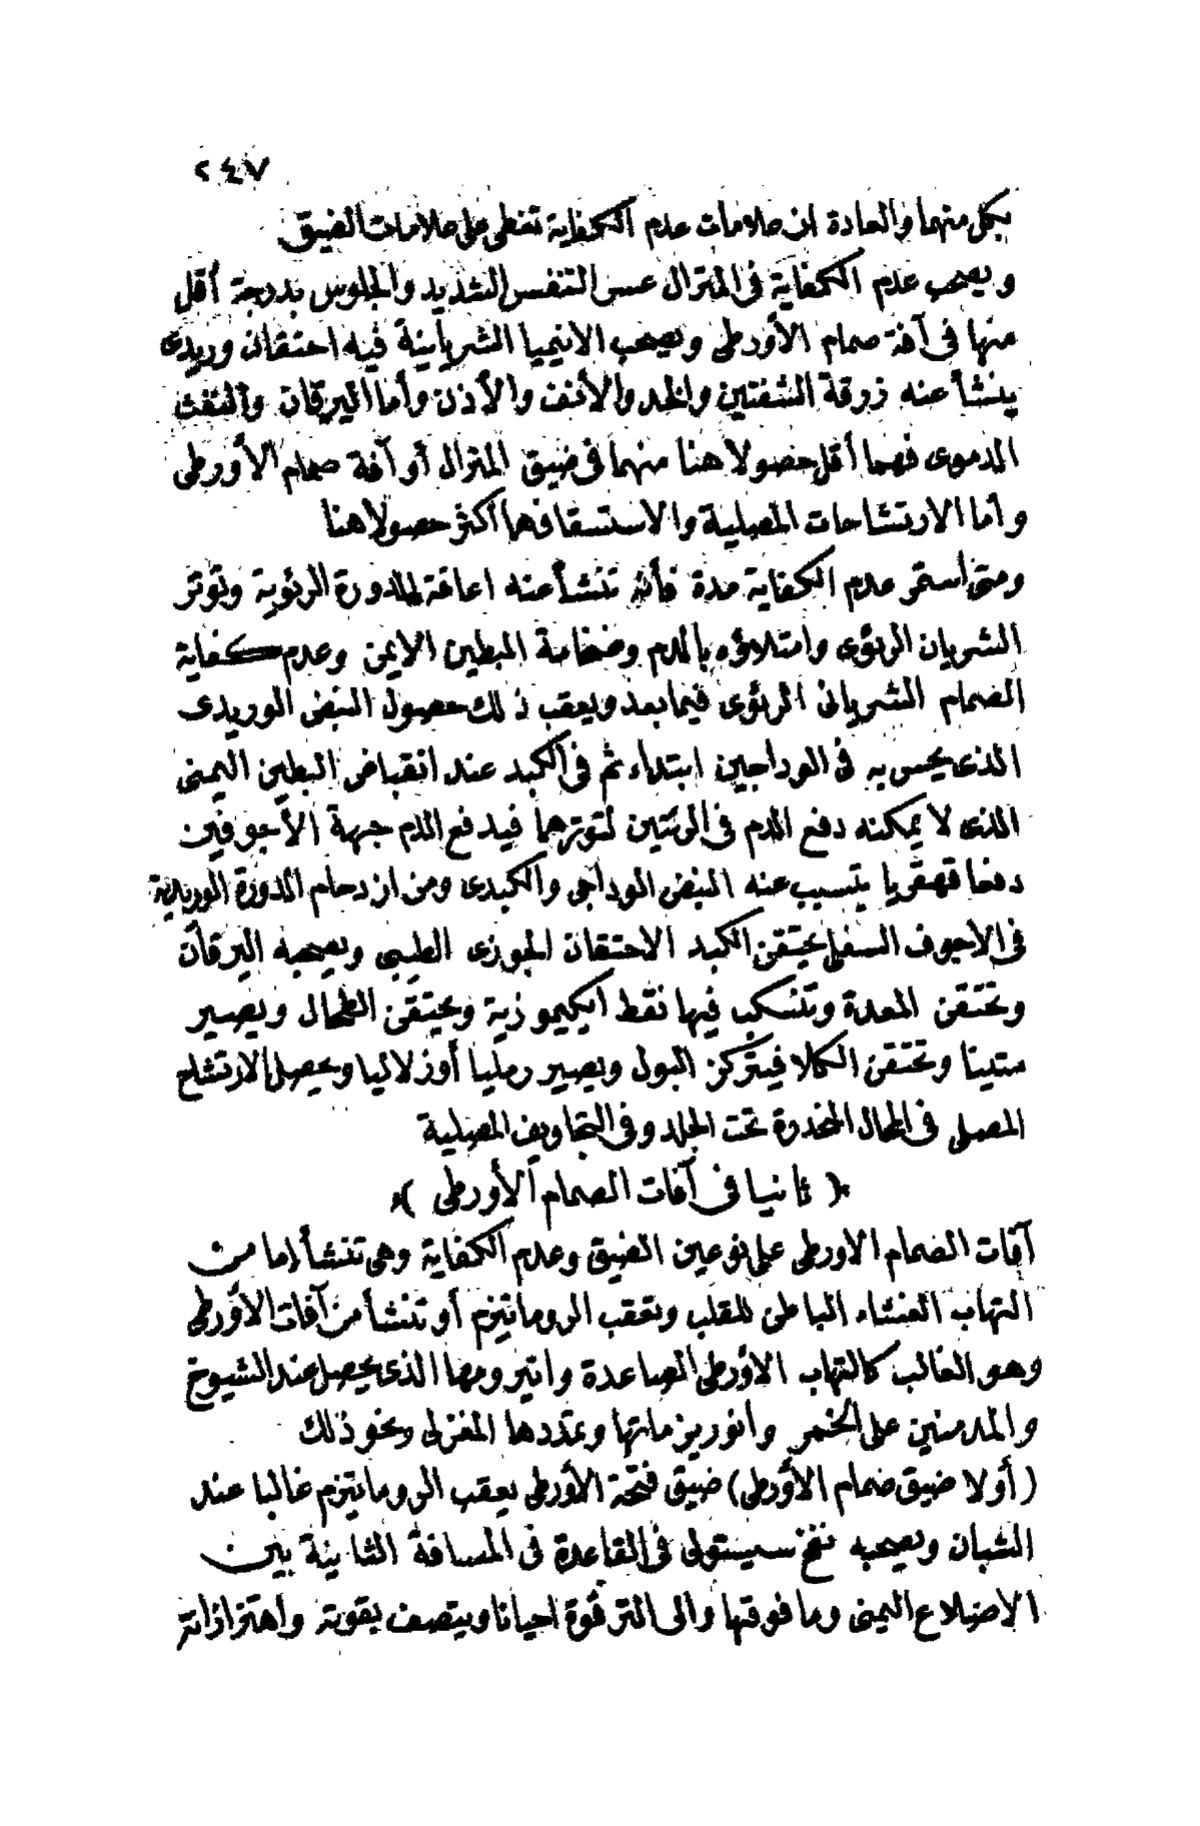 ٢٤٧
بكل منهما والعادة ان علامات عدم الكفاية تغطى على علامات الضيق
ويصحب عدم الكفاية فى المترال عسر التنفس الشديد والجلوس بدرجة أقل
منها فى آفة صمام الأورطى ويصحب الانيميا الشريانية فيه احتقان وريدى
ينشأ عنه زرقة الشفتين والخد والأنف والأذن وأما اليرقان والنفث
الدموى فهما أقل حصولا هنا منهما فى ضيق المترال أو آفة صمام الأورطى
وأما الارتشاحات المصلية والاستسقا فهما أكثر حصولا هنا
ومتى استمر عدم الكفاية مدة فأنه تنشأ عنه اعاقة للدورة الرئوية وتوتر
الشريان الرئوى وامتلاؤه بالدم وضخامة البطين الايمن وعدم كفاية
الصمام الشريانى الرئوى فيما بعد ويعقب ذلك حصول النبض الوريدى
الذى يحس به فى الوداجين ابتداء ثم فى الكبد عند انقباض البطين اليمنى
الذى لا يمكنه دفع الدم فى الرئتين لتوترهما فيدفع الدم جهة الأجوفين
دفعا قهقريا يتسبب عنه النبض الوداجى والكبدى ومن ازدحام الدورة الوريدية
فى الاجوف السفلى يحتقن الكبد الاحتقان الجوزى الطيبى ويصحبه اليرقان
وتحتقن المعدة وتنسكب فيها نقط ايكيموزية ويحتقن الطحال ويصير
متينا وتحتقن الكلا فيتركز البول ويصير رمليا أو زلاليا ويحصل الارتشاح
المصلى فى المحال المنحدرة تحت الجلد وفى التجاويف المصلية
﴿ ثانيا فى آفات الصمام الأورطى ﴾
آفات الصمام الاورطى على نوعين الضيق وعدم الكفاية وهى تنشأ اما من
التهاب الغشاء الباطن للقلب وتعقب الروماتيزم أو تنشأ من آفات الأورطى
وهو الغالب كالتهاب الأورطى الصاعدة واتيرومها الذى يحصل عند الشيوخ
والمدمنين على الخمر وانوريزماتها وتمددها المغزلى ونحو ذلك
(أولا ضيق صمام الأورطى) ضيق فتحة الأورطى يعقب الروماتيزم غالبا عند
الشبان ويصحبه نفخ سيستولى فى القاعدة فى المسافة الثانية بين
الاضلاع اليمنى وما فوقها والى الترقوة احيانا ويتصف بقوته واهتزازاته